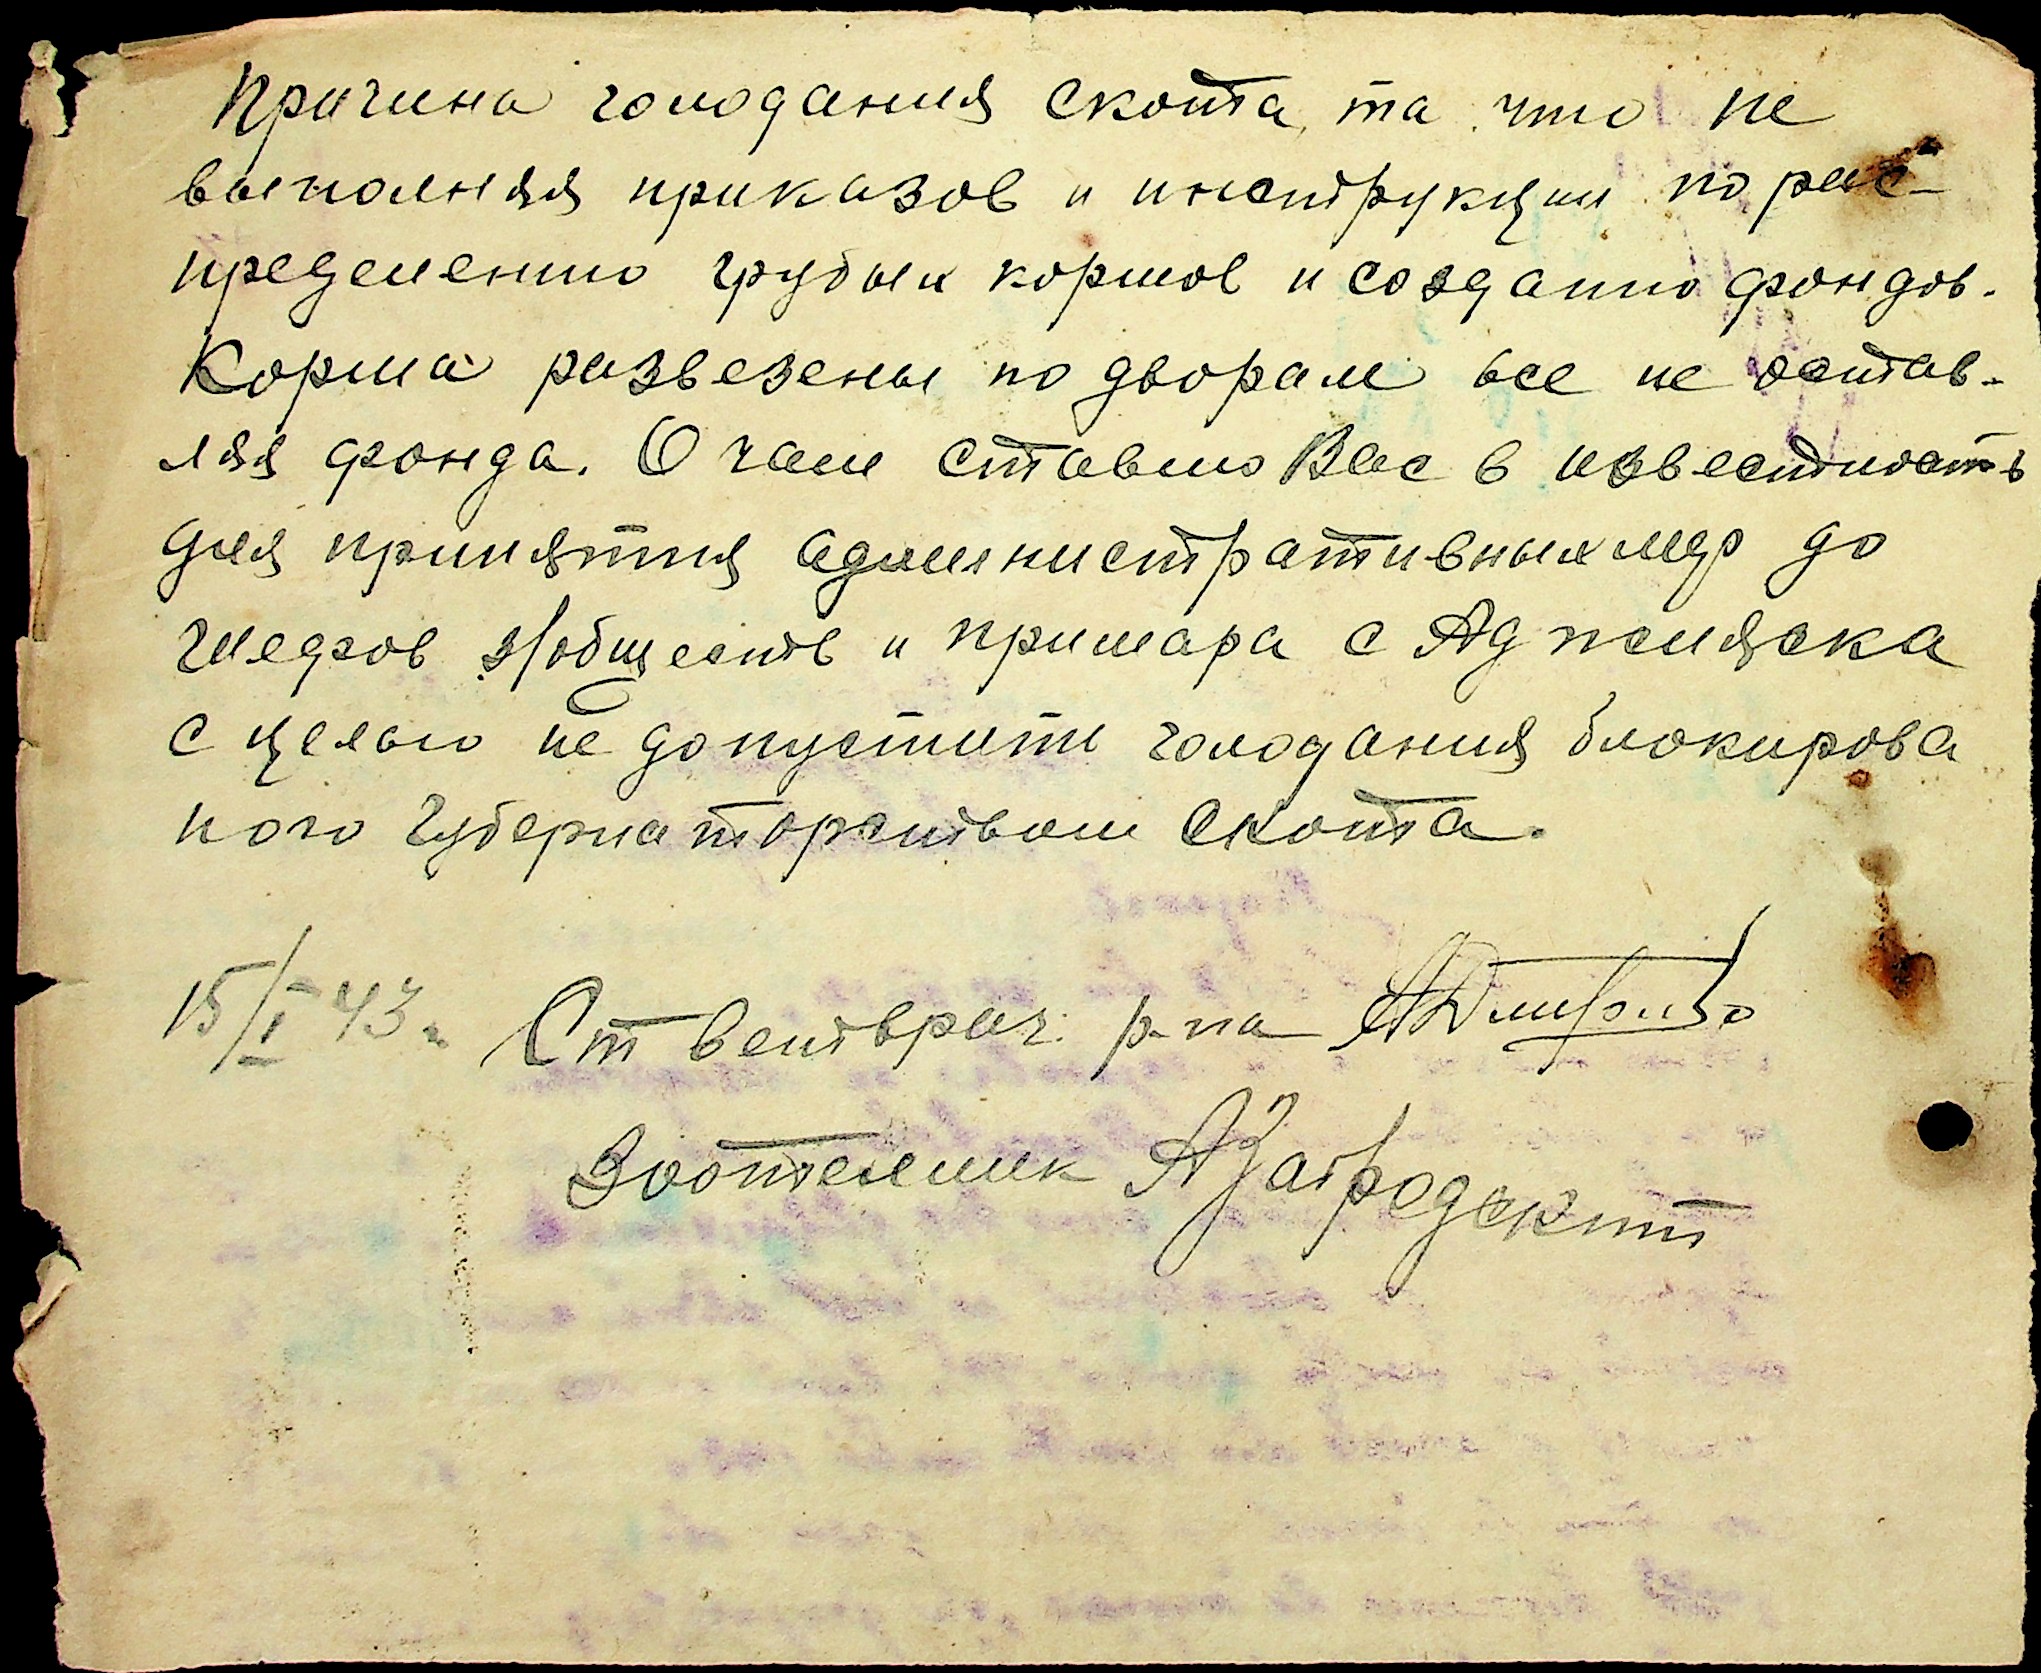 Причина голодания скота, та что не
выполняя приказов и инструкции по рас-
пределению грубых кормов и созданию фондов.
Корма развезены по дворам все не остав-
ляя фонда. О чем ставлю Вас в известность
для принятия административных мер до
шефов з/обществ и примара с Аджияска
с целью не допустить голодания блокирова
ного Губернаторством скота.
15/I 43 г. Ст ветврач р-на
Зоотехник АЗагродский